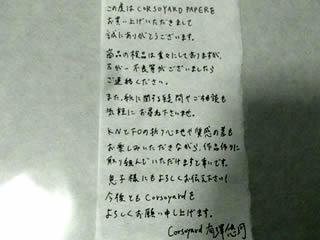 この度は CORSOYARD PAPERを
お買い上げいただきまして
誠にありがとうございます。
商品の検品は重々にしておりますが、
万が一不良等がございましたら
ご連絡ください。
また、紙に関する疑問やご相談も
気軽にお尋ね下さいませ。
KNとFOの折り心地や質感の差も
お楽しみいただきながら、作品作りに
取り組んでいただけますと幸いです。
息子様にもよろしくお伝え下さい!
今後ともCorsoyardを
よろしくお願い申し上げます。
Corsoyard 有澤悠河